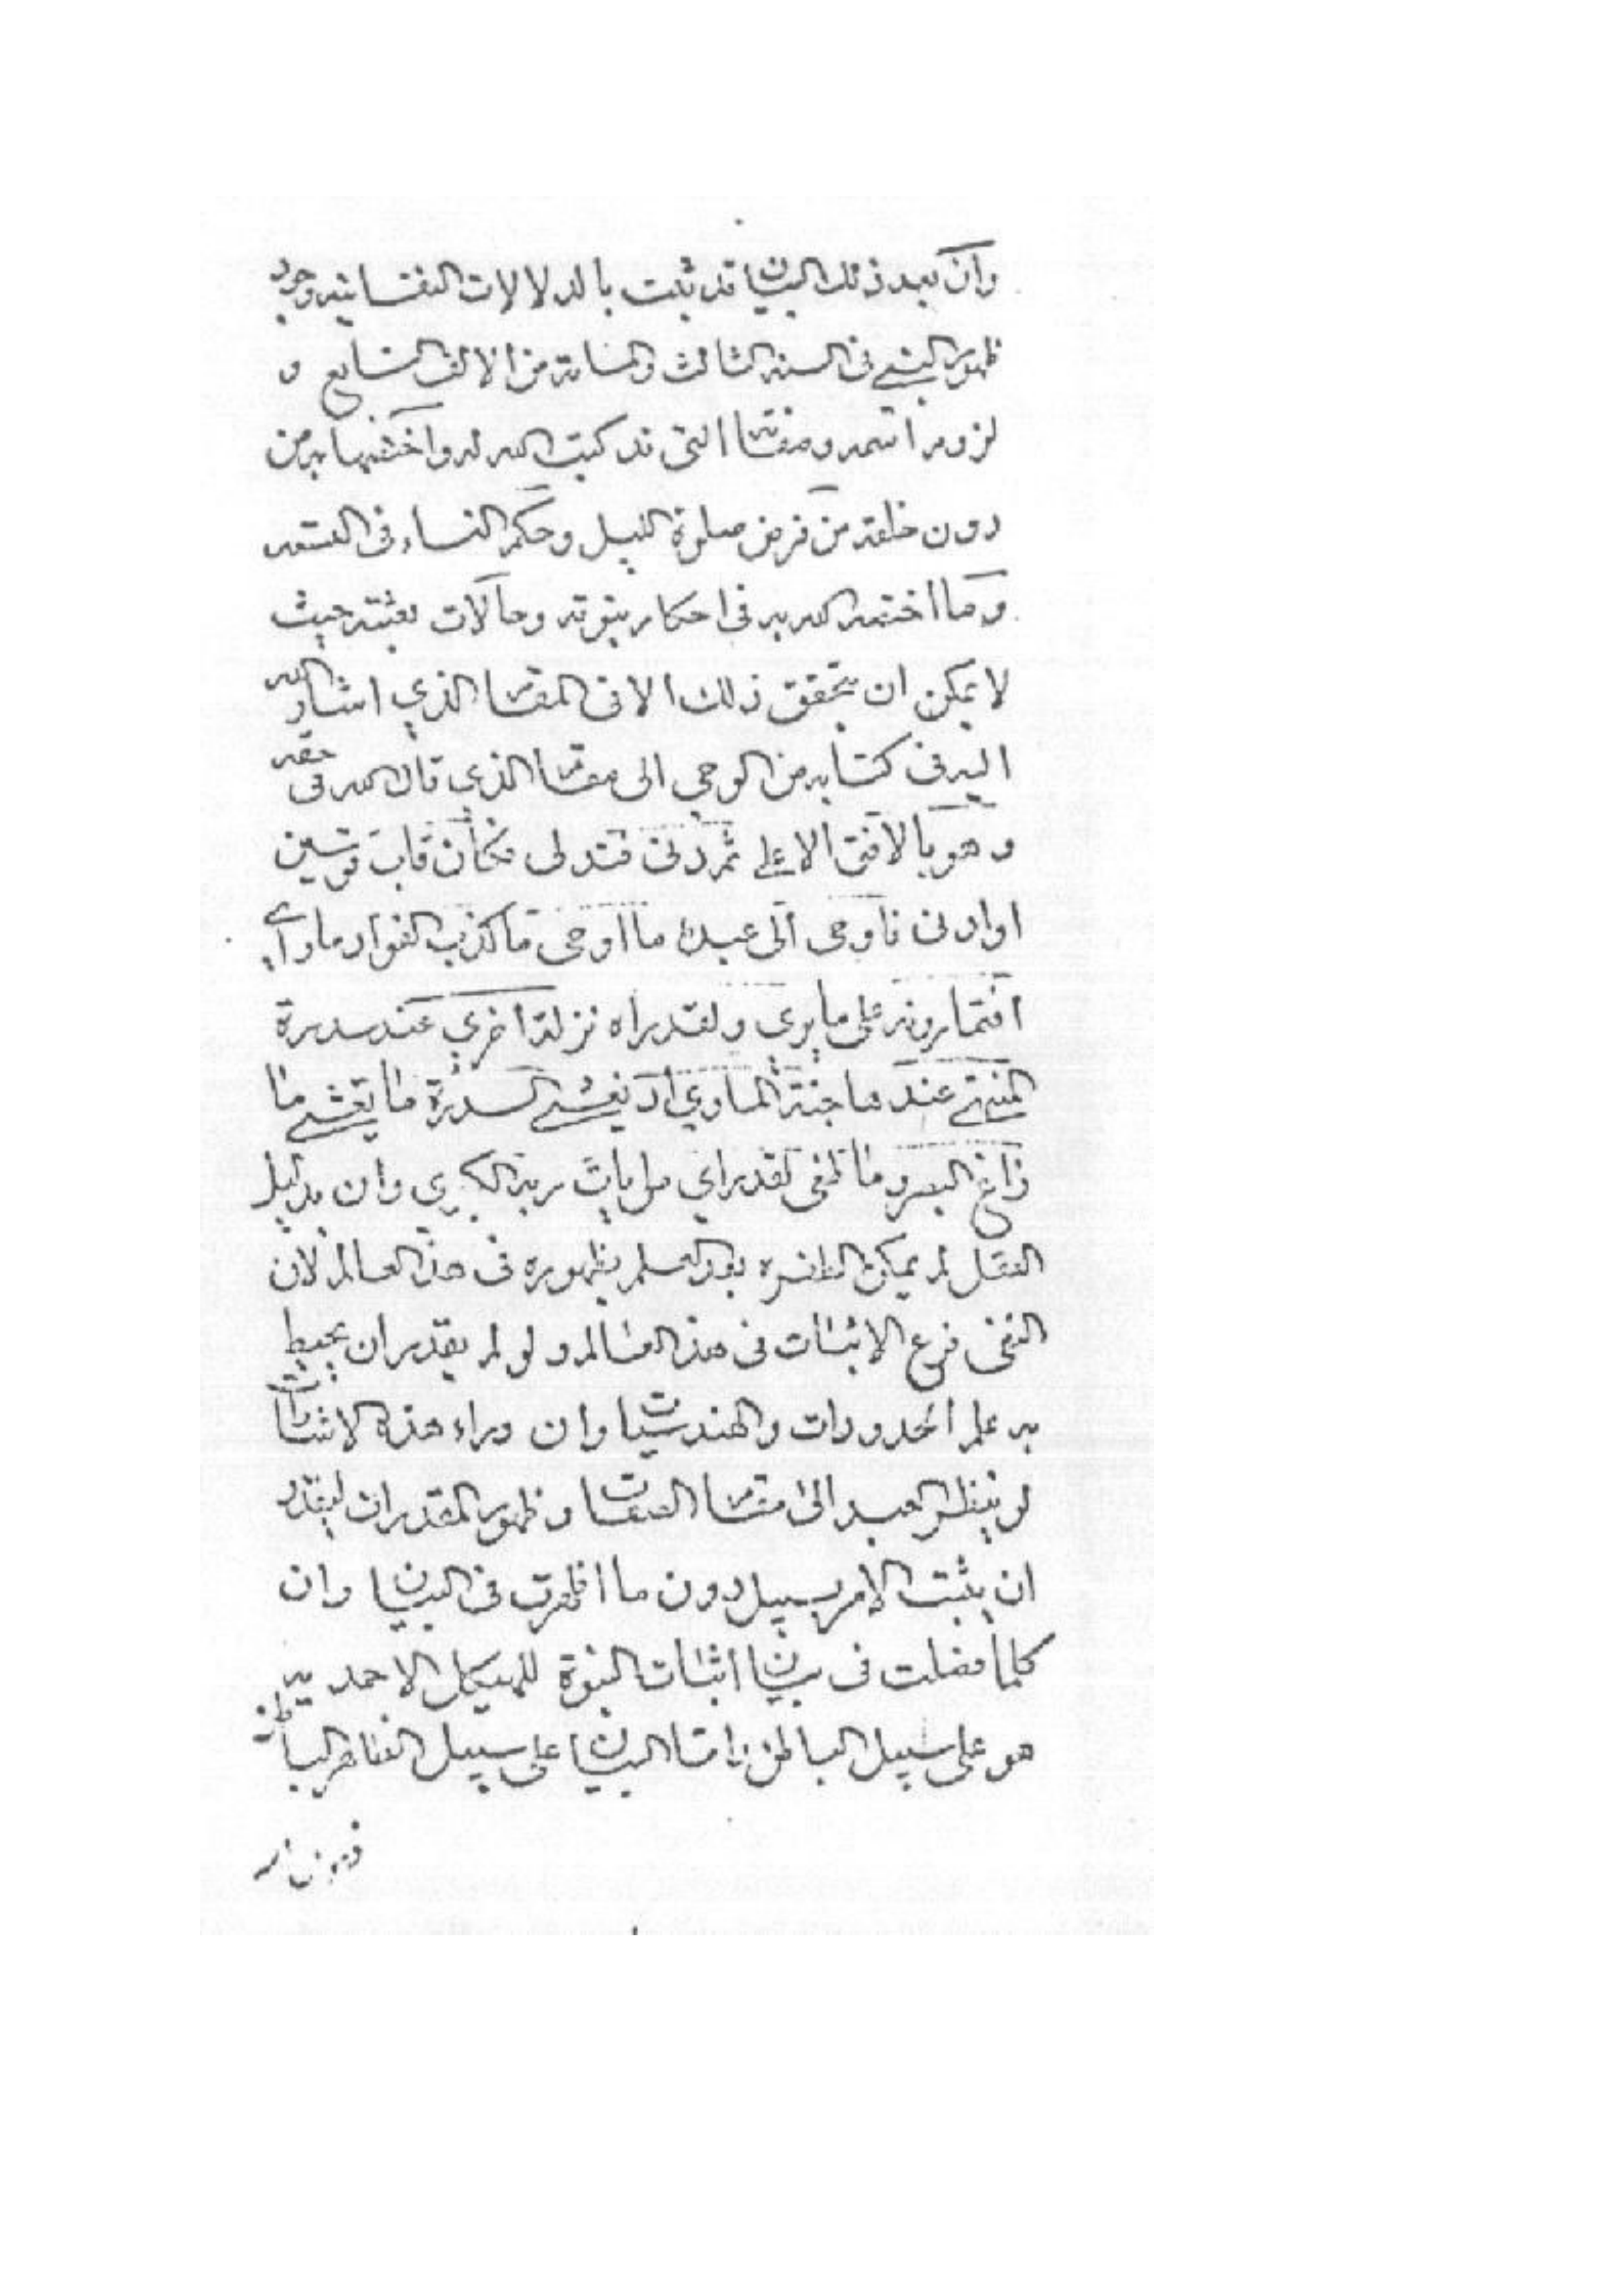 وان بعد ذلك البيان قد ثبت بالدلالات النفسانيه وجود
ظهور النبي في السنه الثالث والمائة من الالف السابع و
لزوم اسمه وصفته التي قد كتب الله له واختصها به من
دون خلقه من فرض صلوة الليل وحكم النساء في التسعه
وما اختصه الله به في احكام نبوته وحالات بعثته حيث
لا يمكن ان يتحقق ذلك الا في المقام الذي اشار الله
اليه في كتابه من الوحي الى مقام الذي قال الله في حقه
وهو بالافق الاعلى ثم دنى فتدلى فكان قاب قوسين
او ادنى فاوحى الى عبده ما اوحى ما كذب الفواد ما راي
افتمارونه على ما يري ولقد راه نزلة اخري عند سدرة
المنتهى عندها جنة الماوي اذ يغشى السدرة ما يغشى ما
زاغ البصر وما طغى لقد راي من ايات ربه الكبري وان بدليل
العقل لم يمكن الطفره بعد العلم بظهوره في هذا العالم لان
النفى فرع الاثبات في هذا العالم ولو لم يقدر ان يحيط
به علم المحدودات والهندسيات وان وراء هذه الاشارات
لو ينظر العبد الى مقام الصفات وظهور المقدران ليقدر
ان يثبت الامر بسبيل دون ما اظهرت في البيان وان
كلما فصلت في بيان اثبات النبوة للهيكل الاحمديه
هو على سبيل الباطن واما البيان على سبيل الظاهر الباطن